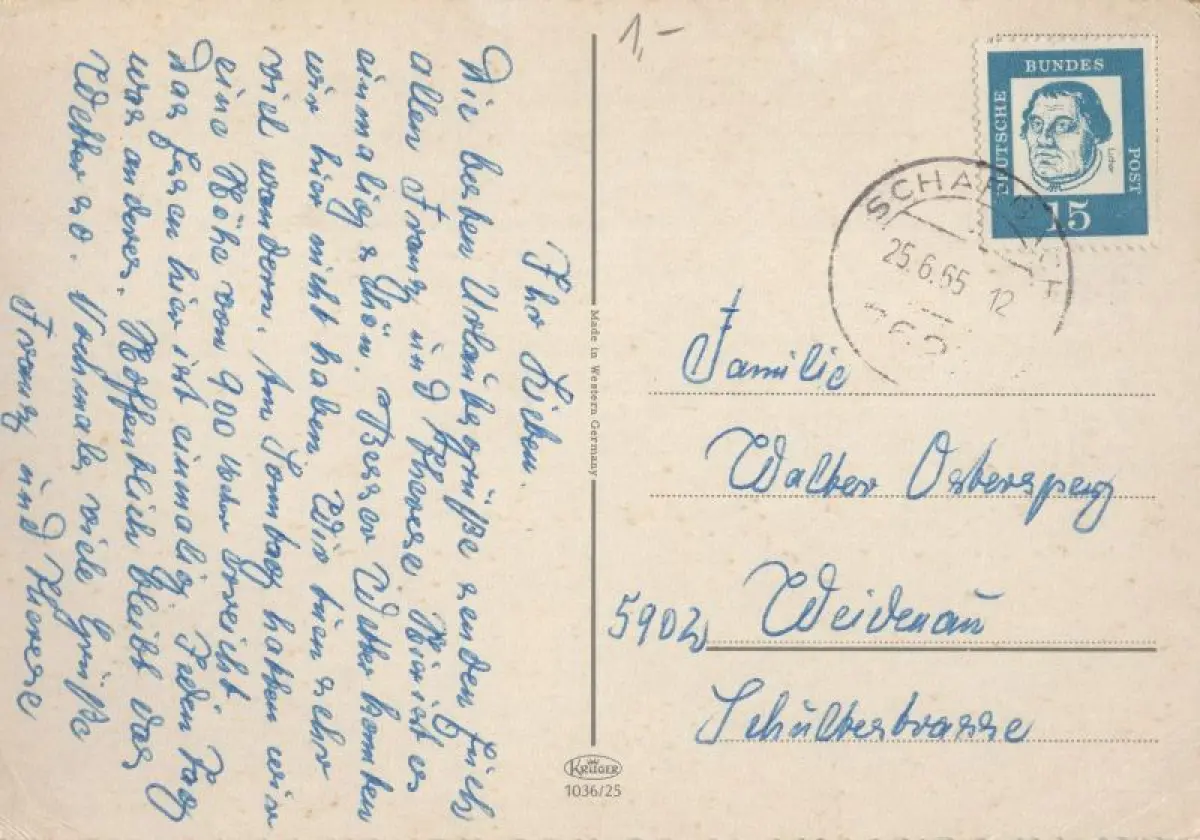 Ihr Lieben.
Die besten Urlaubsgrüße senden Euch
allen Franz und Therese Hier ist es
einmalig schön. Besser Wetter konnten
wir hier nicht haben. Wir tuen sehr
viel wandern. Am Sonntag hatten wir
eine Höhe von 900 mtr erreicht
Das Essen hier ist einmalig. Jeden Tag
was anderes. Hoffentlich bleibt das
Wetter so. Nochmals viele Grüße
Franz und Therese
1,-
DEUTSCHE BUNDES POST
Luther
15
25.6.65 12
Made in Western Germany
Familie
Walter
5902 Weidenau
Schulterstrasse
KRÜGER
1036/25